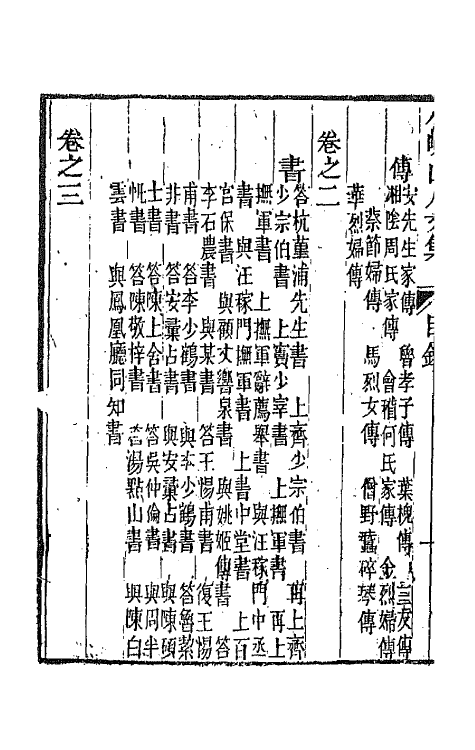 山人文集 目錄
傳
安先生家傳 魯孝子傳 葉槐傳 三友傳
湘陰周氏家傳 會稽何氏家傳 金烈婦傳
蔡節婦傳 馬烈女傳 僧野蠶碎琴傳
華烈婦傳
卷之二
書
答杭菫浦先生書 上齊少宗伯書 再上齊
少宗伯書 上竇少宰書 上撫軍書 再上
撫軍書 上撫軍辭薦舉書 與汪稼門中丞
書 與汪稼門撫軍書 上書中堂書 上百
宮保書 與顧丈響泉書 與姚姬傳書 答
李石農書 與某書 答王惕甫書 復王惕
甫書 答李少鶴書 與李少鶴書 答魯絜
非書 答安彙占書 與安彙占書 與陳碩
士書 答陳上舍書 答吳仲倫書 與周半
帆書 答陳敬梓書 答湯點山書 與陳白
雲書 與鳳凰廳同知書
卷之三